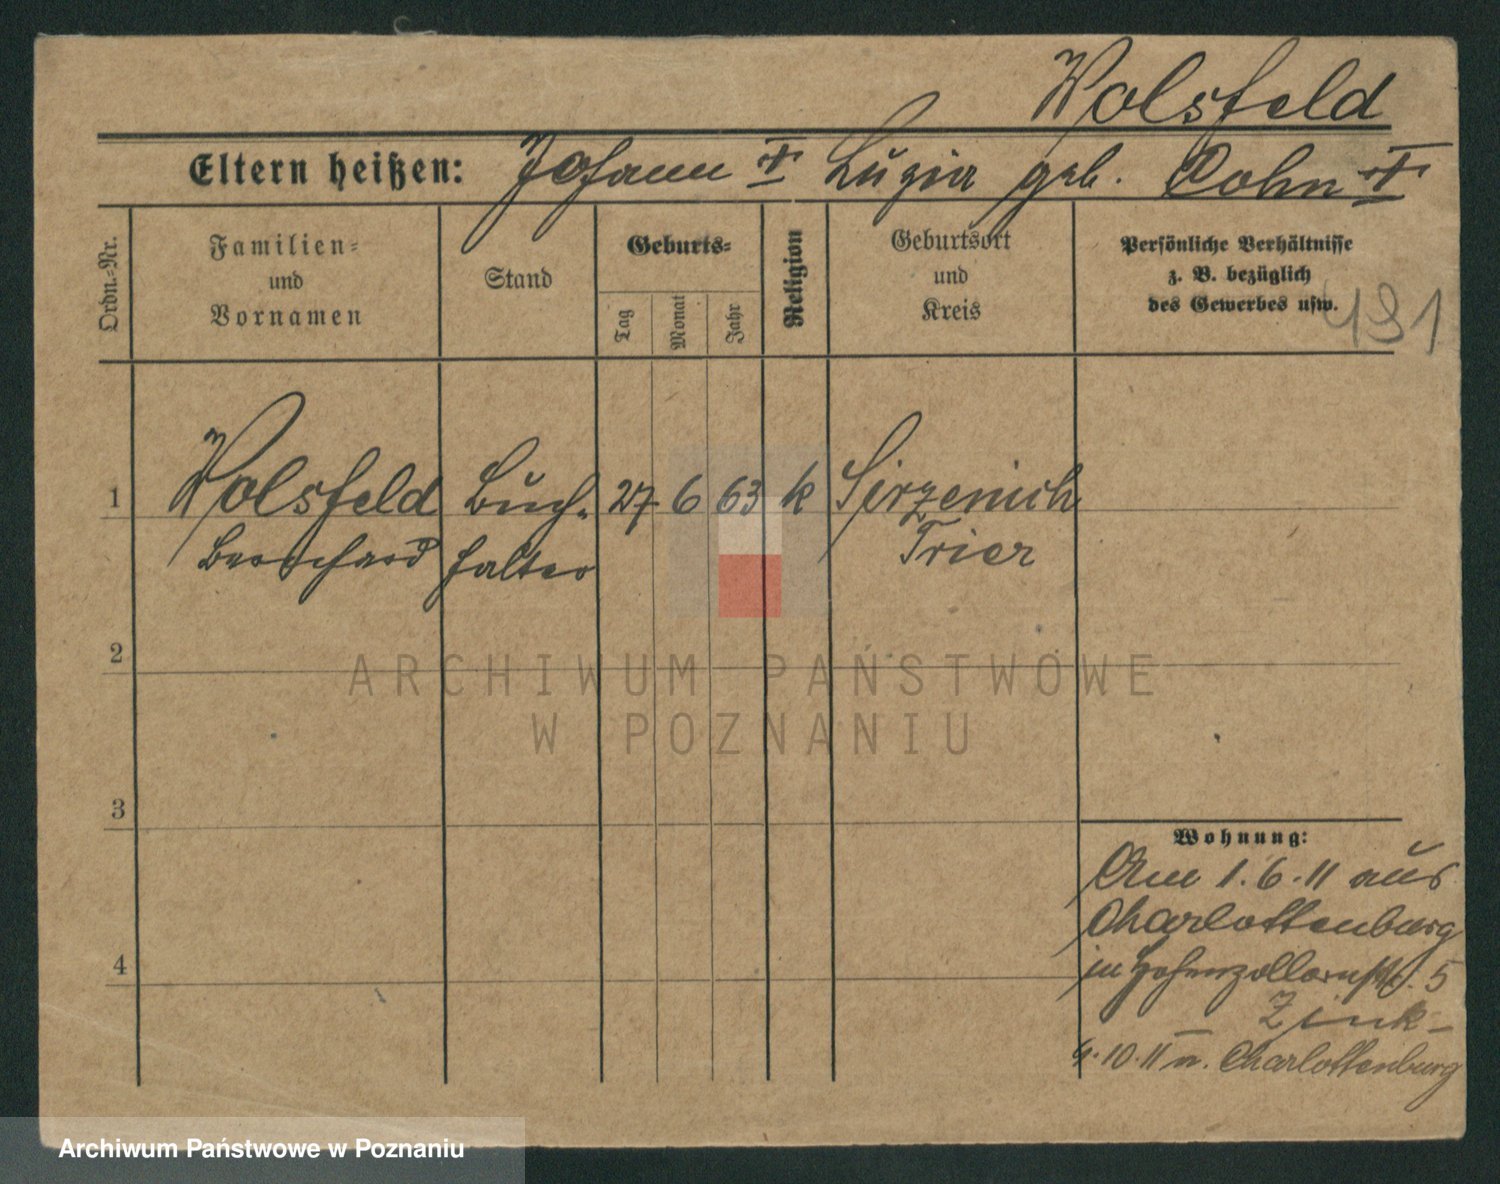 Wolsfeld
Eltern heißen: Johann † Luzia geb. Cohn †
Ordn.-Nr.
Familien-
und
Vornamen
Stand
Geburts-
Tag
Monat
Jahr
Religion
Geburtsort
und
Kreis
Persönliche Verhältnisse
z. B. bezüglich
des Gewerbes usw.
191
1 Wolsfeld Buch- 27 6 63 k Sirzenich
Bernhard halter Trier
2
3
4
Wohnung:
Am 1.6.11 aus
Charlottenburg
in Hohenzollernstr. 5
Zink-
4.10.11 n. Charlottenburg
ARCHIWUM PAŃSTWOWE
W POZNANIU
Archiwum Państwowe w Poznaniu